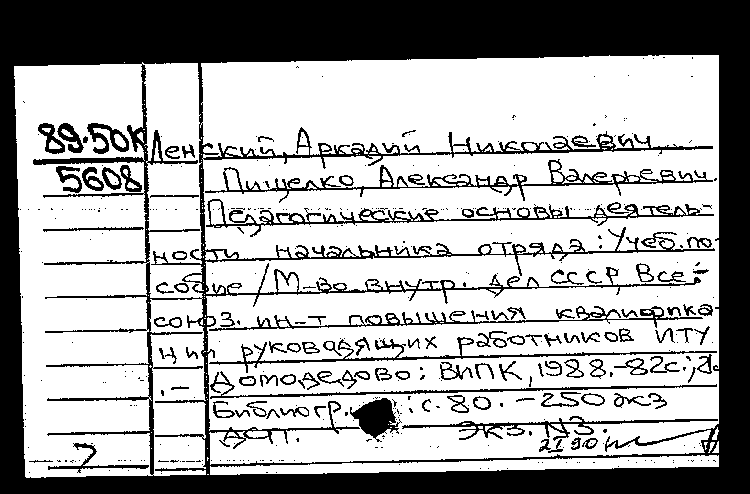 89-50К Ленский, Аркадий Николаевич,
5608 Пищелко, Александр Валерьевич.
Педагогические основы деятель-
ности начальника отряда: Учеб. по-
собие / М-во внутр. дел СССР, Все-
союз. ин-т повышения квалифика-
ции руководящих работников ИТУ
.- Домодедово: ВИПК, 1988.-82с.;
Библиогр. : с. 80. - 250 экз
ДСП. Экз. N3.